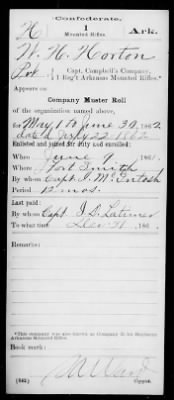 Confederate.
H 1 Ark.
Mounted Rifles.
W. H. Horton
Pvt., Capt. Campbell's Company,
1 Reg't Arkansas Mounted Rifles.*
Appears on
Company Muster Roll
of the organization named above,
for May 1 to June 30, 1862.
dated July 22 1862
Enlisted and joined for duty and enrolled:
When June 9, 1861.
Where Fort Smith
By whom Capt. J. McIntosh
Period 12 mos.
Last paid:
By whom Capt. J. S. Latimer
To what time Dec 31, 186
Remarks:
*This company was also known as Company H, 1st Regiment
Arkansas Mounted Rifles.
Book mark:
M Ward
(642) Copyist.